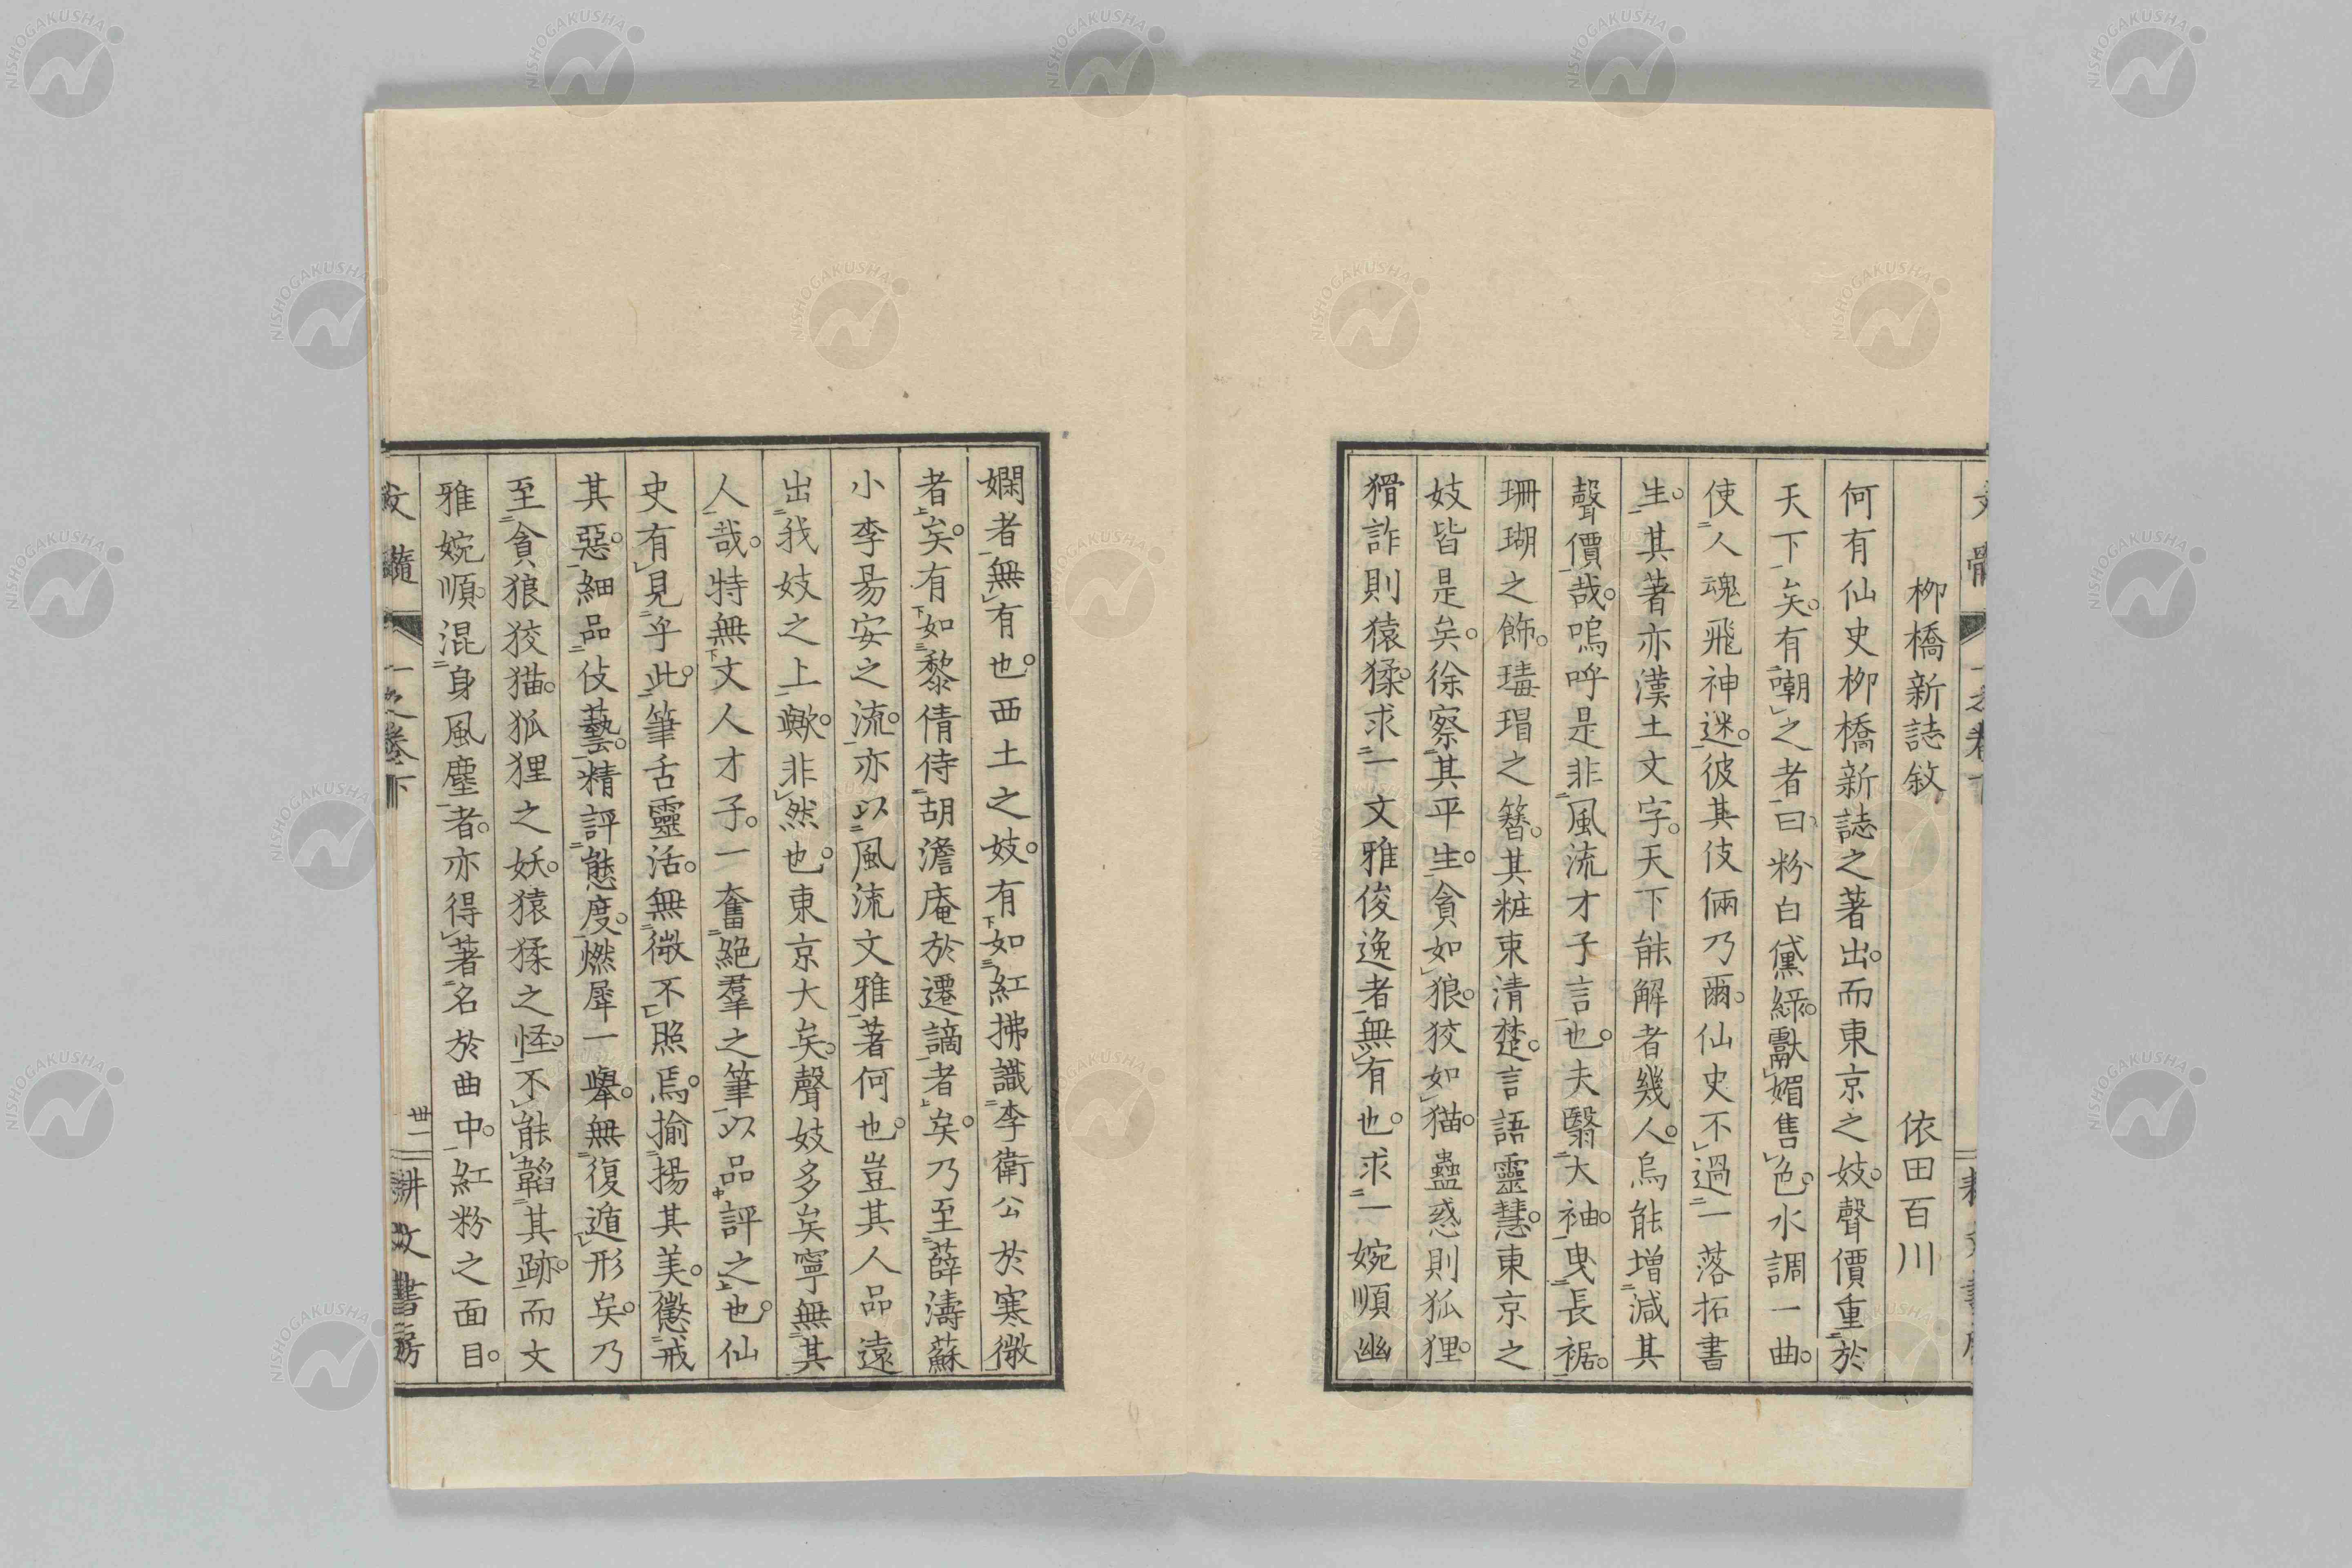 柳橋新誌敘　依田百川
何有仙史柳橋新誌之著出。而東京之妓。聲價重於
天下矣。有嘲之者曰、粉白黛綠。獻媚售色。水調一曲。
使人魂飛神迷。彼其伎倆乃爾。仙史不過一落拓書
生。其著亦漢土文字。天下能解者幾人。烏能增減其
聲價哉。嗚呼是非風流才子言也。夫翳大袖。曳長裾。
珊瑚之飾。瑇瑁之簪。其粧束清楚。言語靈慧。東京之
妓皆是矣。徐察其平生。貪如狼。狡如猫。蠱惑則狐狸。
猾詐則猿猱。求一文雅俊逸者無有也。求一婉順幽
嫻者無有也。西土之妓。有如紅拂識李衛公於寒微
者矣。有如黎倩侍胡澹庵於遷謫者矣。乃至薛濤蘇
小李易安之流。亦以風流文雅著何也。豈其人品遠
出我妓之上歟。非然也。東京大矣。聲妓多矣寧無其
人哉。特無文人才子。一奮絕羣之筆以品評之也。仙
史有見乎此。筆舌靈活。無微不照焉。揄揚其美。懲戒
其惡。細品伎藝。精評態度。燃犀一舉。無復遁形矣。乃
至貪狼狡猫。狐狸之妖。猿猱之怪。不能韜其跡。而文
雅婉順。混身風塵者。亦得著名於曲中。紅粉之面目。
文髓　一之卷下　卅一　耕文書房